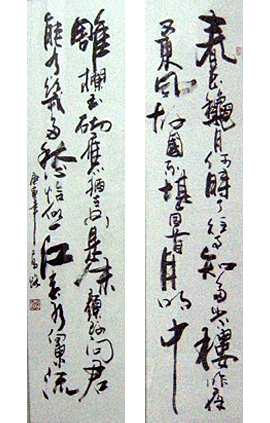 春花龝月何時了往事知多少小樓昨夜
又東風故國不堪回首月明中
雕欄玉砌應猶在只是朱顏改問君
能有幾多愁恰似一江春水向東流
庚寅年